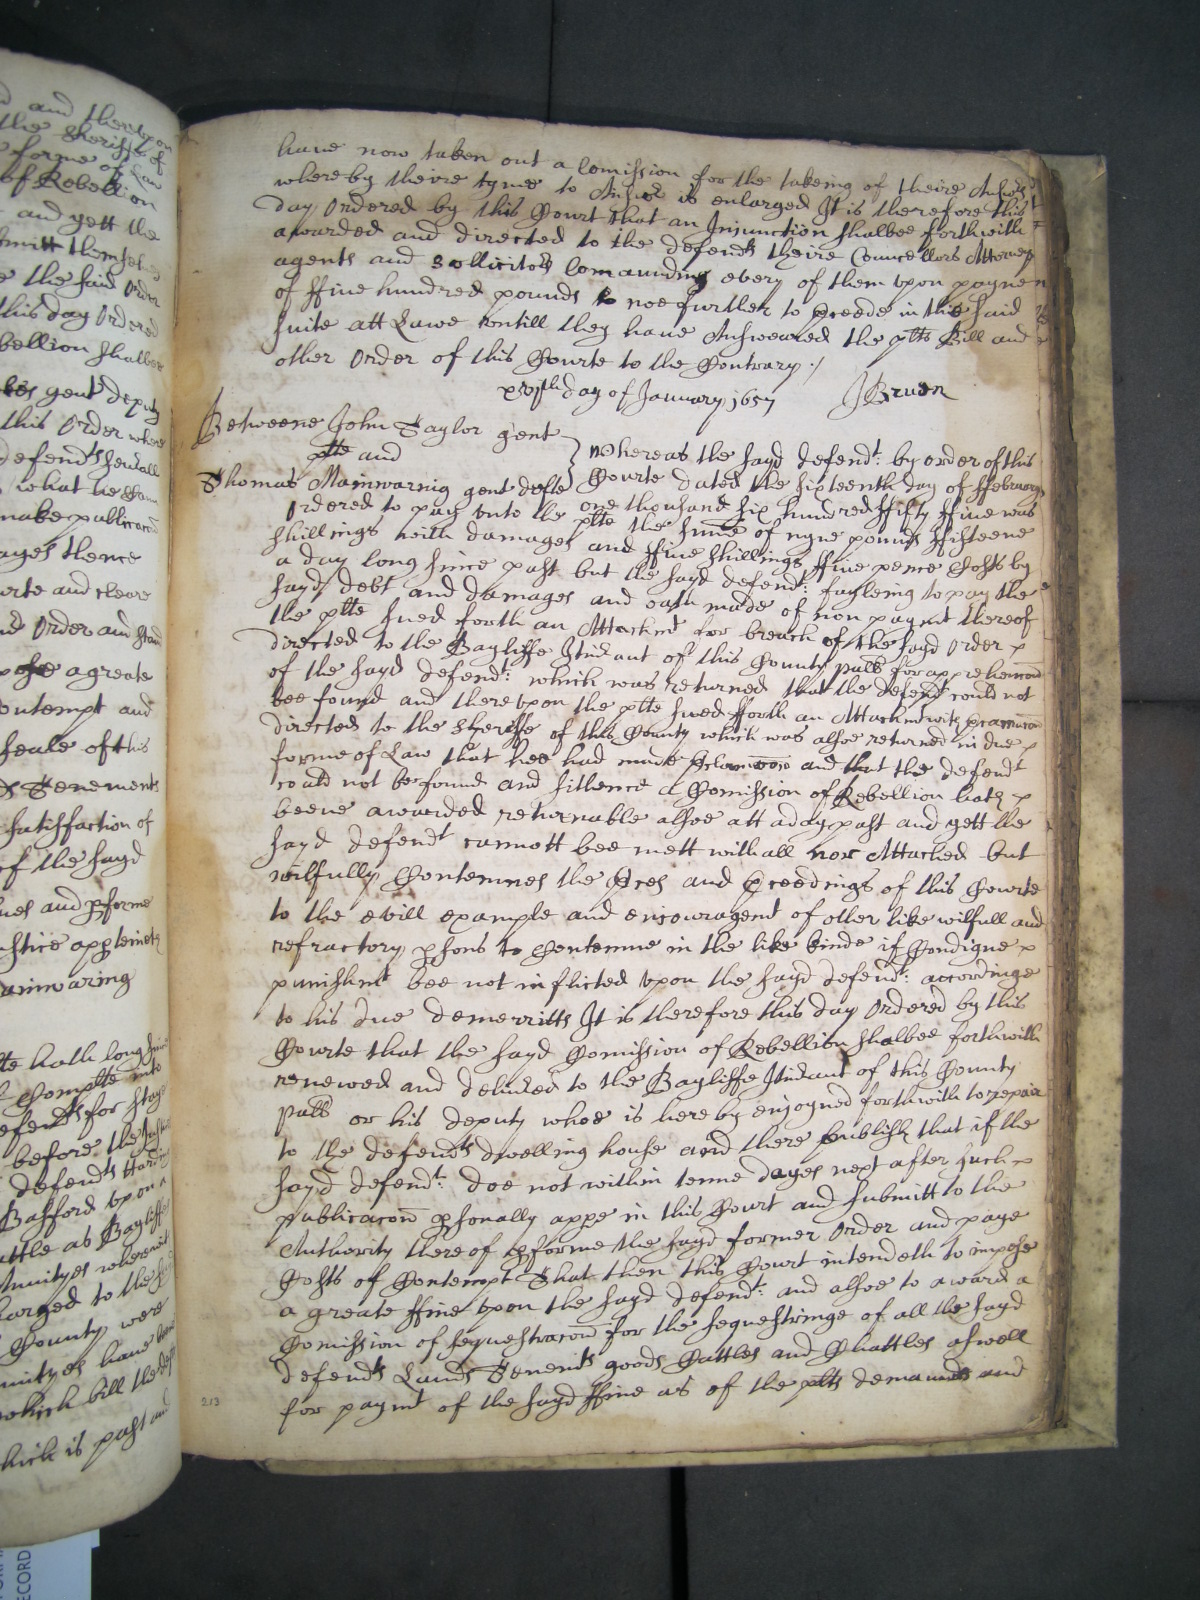 and thereupon
the Sheriffe of
forme of Law
of Rebellion
and yett the
submitt themselves
the said Order
this day Ordered
Rebellion shalbee
gent deputy
this Order where
defendts
what he
make publicacon
dayes thence
Courte and cleare
Order and stand
impose a greate
Contempt and
seale of this
Tenements
satisfaction of
of the sayd
and pforme
Justice apperteineth
Mainwaring
hath long since
defendts for stay
before the
defendts
Bafford upon a
Cattle as Bayliffe
Annuityes wherewith
charged to the
County were
Annuityes have
which bill the deft
which is past and
haue now taken out a Comission for the takeing of theire Answeres
whereby theire tyme to Answeare is enlarged It is therefore this
day Ordered by this Court that an Injunction shalbee forthwith
awarded and directed to the defendts theire Councellors Attorneys
agents and Sollicitors Comaunding every of them vpon payne
of ffiue hundred pounds noe further to pceede in the said
suite att Lawe vntill they haue Answeared the plts Bill and
other Order of this Courte to the Contrary ./
day of January 1657 JBruen
Betweene John Taylor gent
plte and
Thomas Mainwaring gent defte
Whereas the sayd defendt: by order of this
Courte dated the sixteenth day of ffebruary
one thousand six hundred ffifty ffiue was
Ordered to pay vnto the plte the sume of nyne pounds ffifteene
shillings with damages and ffiue shillings ffiue pence Costs by
a day long since past but the sayd defendt: fayleing to pay the
sayd debt and damages and oath made of non paymt thereof
the plte sued forth an Attachmt for breach of the sayd Order
directed to the Bayliffe Itinant of this County palt for apprehencon
of the sayd defendt: which was returned that the defendt could not
bee found and therevpon the plte sued fforth an Attachmt with pclamacon
directed to the Sheriffe of this County which was alsoe returned in due
forme of Law that hee had made pclamacon and that the defendt
could not be found and sithence a Comission of Rebellion hath
beene awarded returnable alsoe att a day past and yett the
sayd defendt cannott bee mett withall nor Attached but
wilfully Contemnes the pces and pceedings of this Courte
to the evill example and encouragemt of other like wilfull and
refractory psons to Contemne in the like kinde if Condigne
punishmt bee not inflicted vpon the sayd defendt: accordinge
to his due demerritts It is therefore this day Ordered by this
Courte that the sayd Comission of Rebellion shalbee forthwith
renewed and deliuered to the Bayliffe Itinant of this County
palt or his deputy whoe is hereby enjoyned forthwith to repaire
to the defendts dwelling house and there publish that if the
sayd defendt: doe not within tenne dayes next after such
publicacon psonally appe in this Court and submitt to the
Authority thereof pforme the sayd former Order and paye
Costs of Contempt That then this Court intendeth to impose
a greate ffine vpon the sayd defendt: and alsoe to award a
Comission of sequestracon for the sequestringe of all the sayd
defendts Lands Tenemts goods Cattles and Chattles aswell
for paymt of the sayd ffine as of the plts demaunds and
213